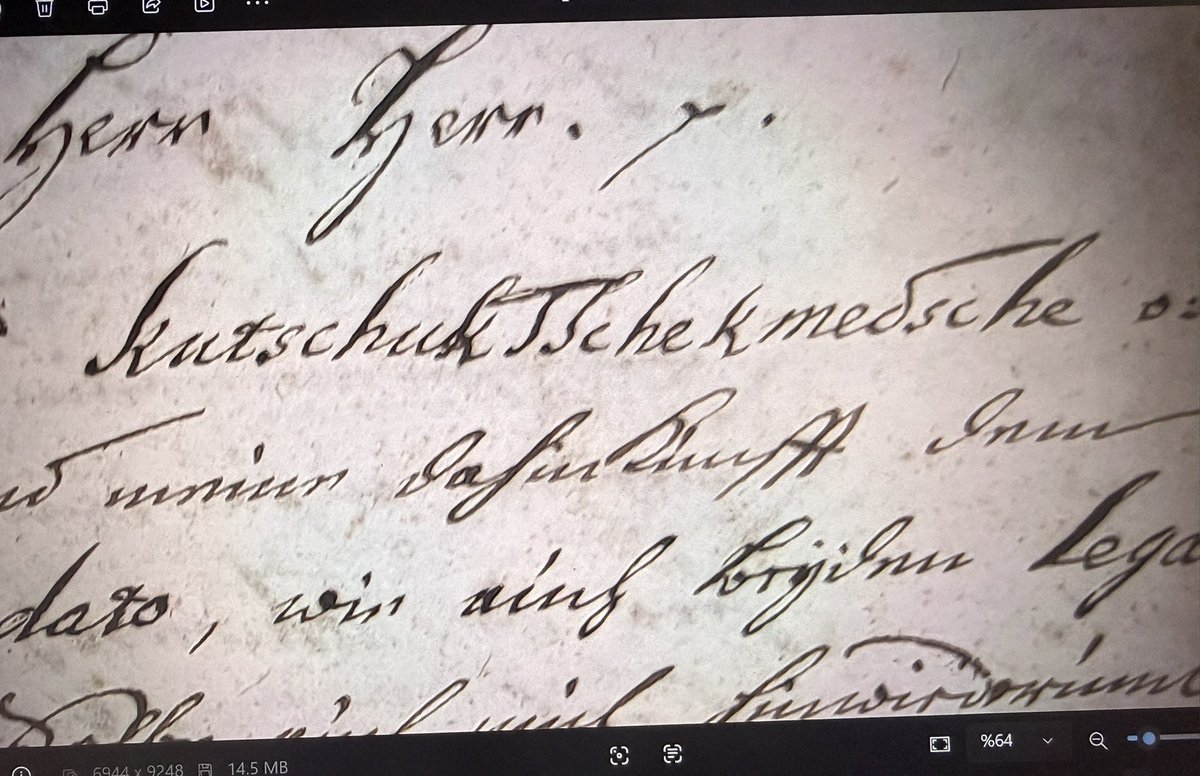 Herrn Herr. r.
Kutschuk Tschekmedsche
meiner dahinkunft dem
dato, wie auch beÿden Lega
auch mich
%64
6944 x 9248 14.5 MB